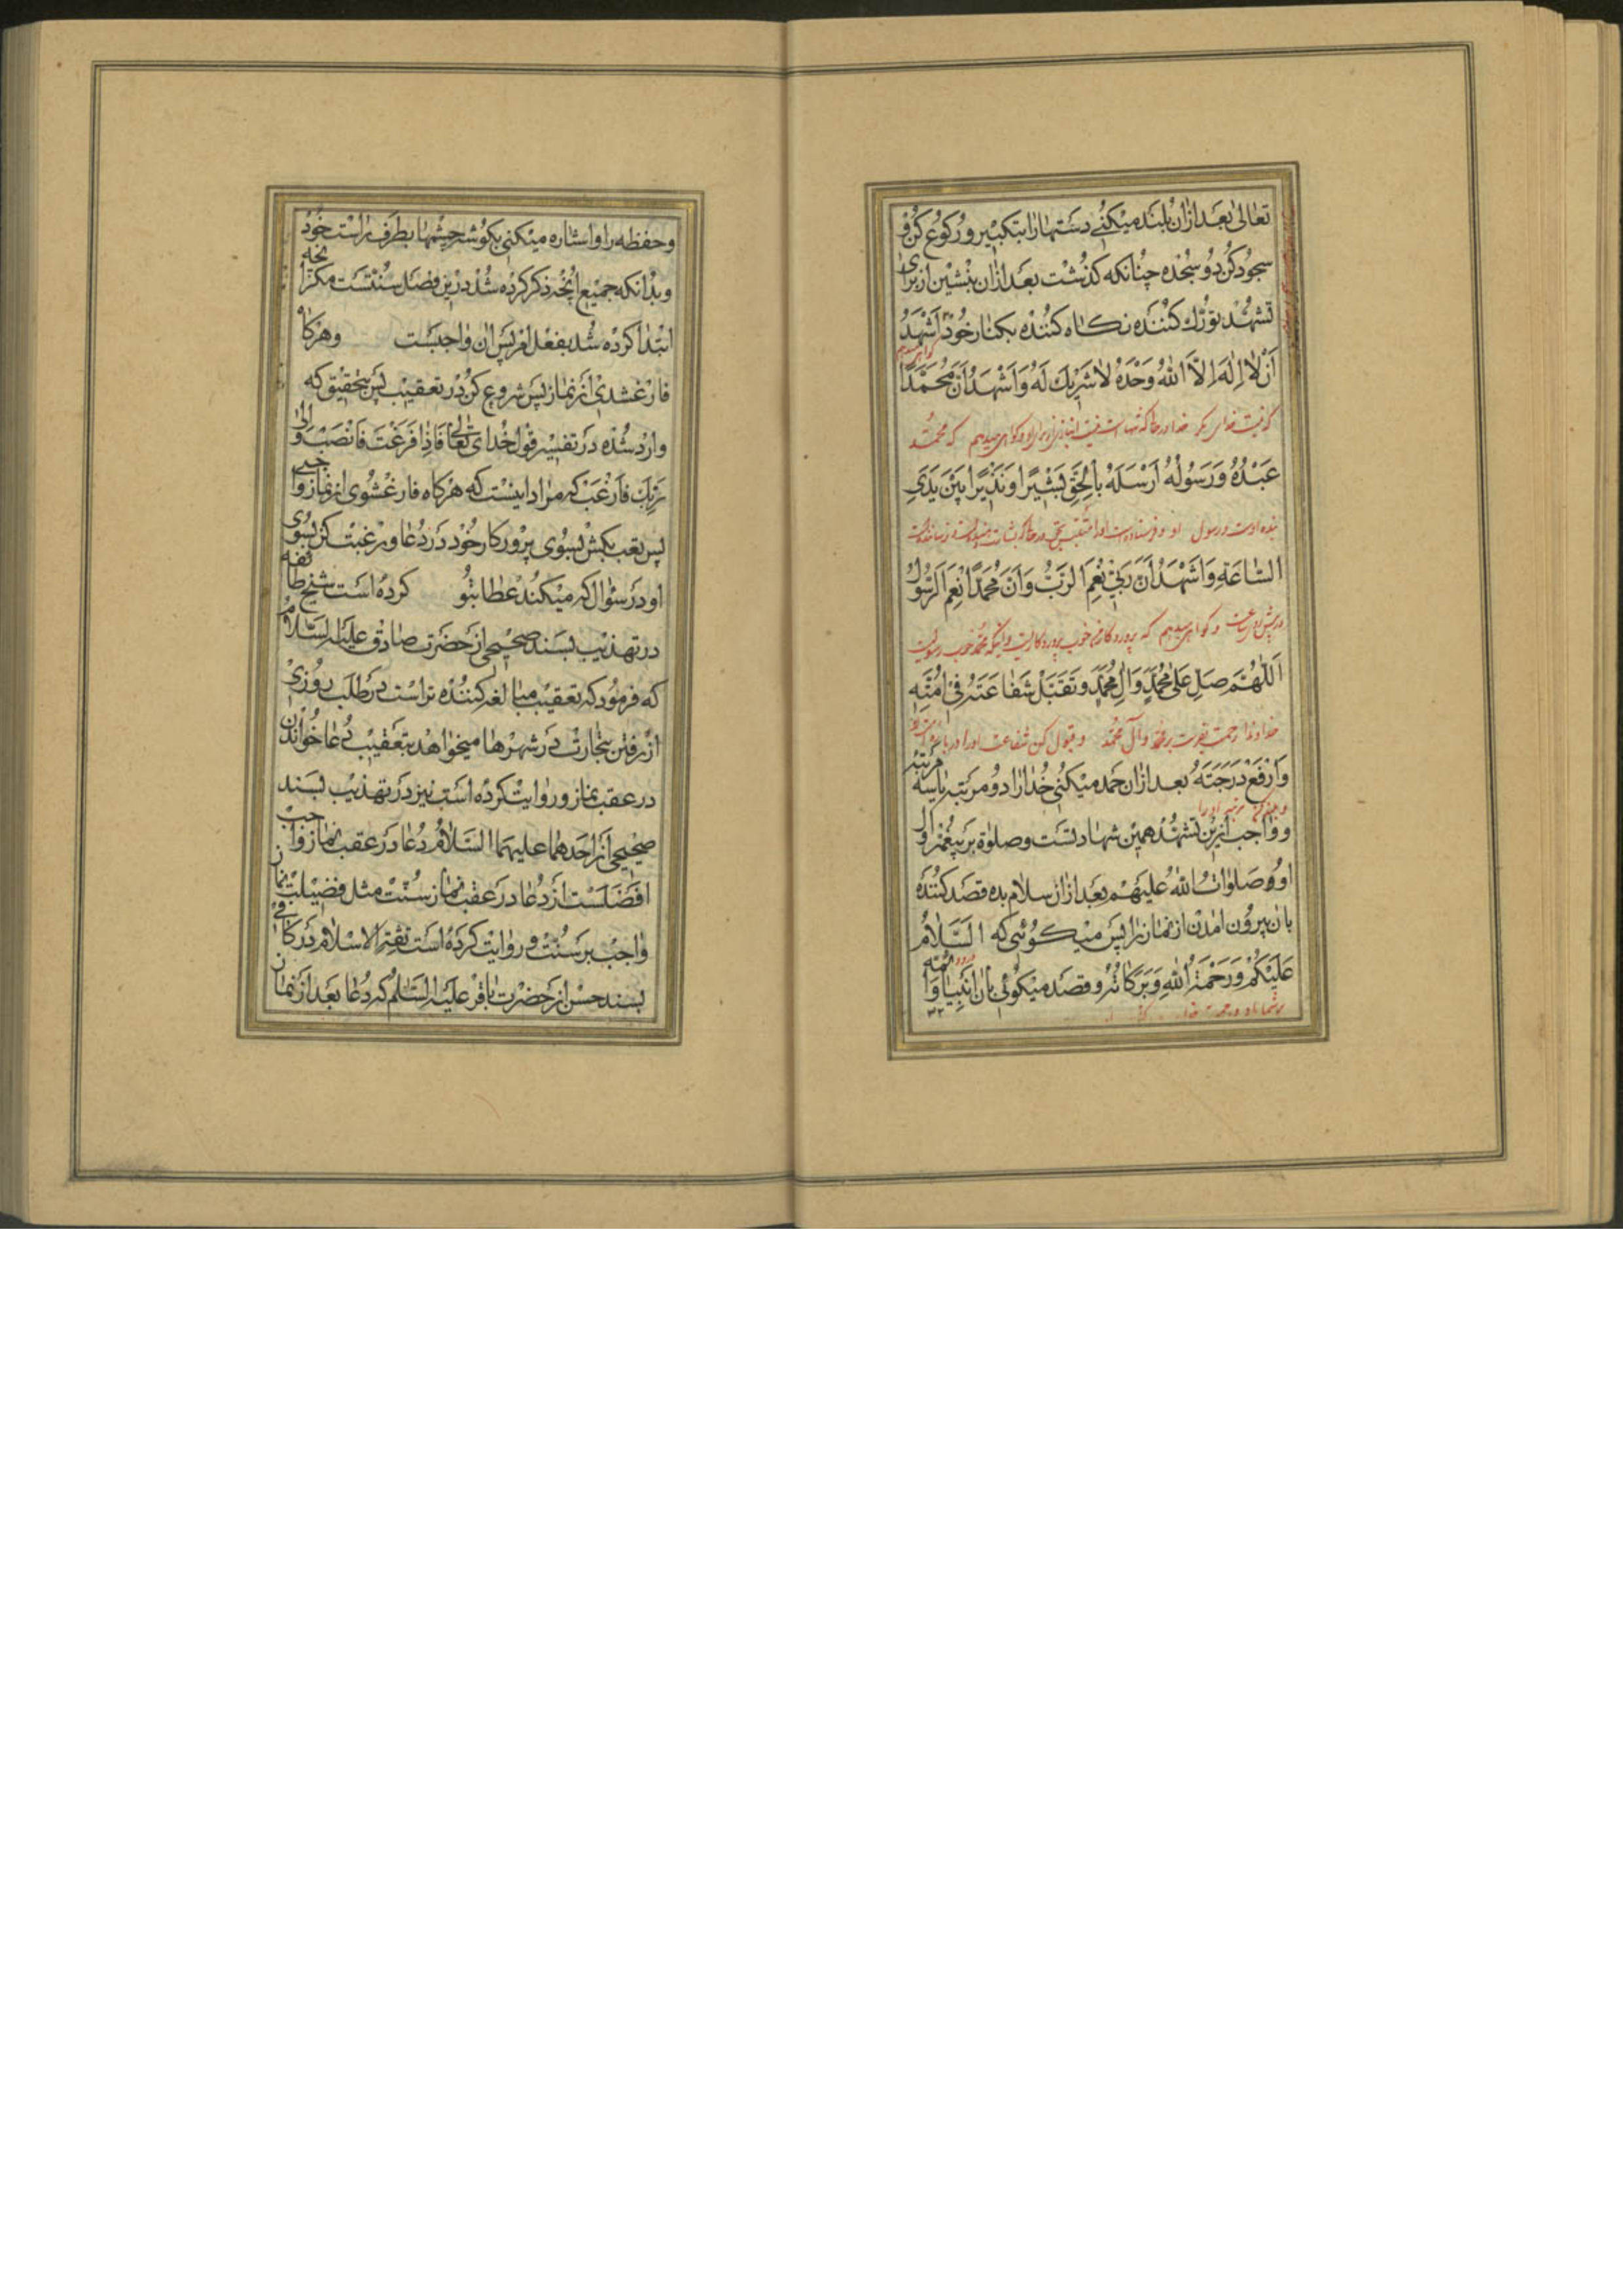 تعالی بعد ازان بلند میکنی دستهارا بتکبیر و رکوع کن و
سجود کن دو سجده چنانکه کذشت بعد ازان بنشین از برای
تشهد تورک کننده نکاه کننده بکنار خود اَشْهَدُ
اَنْ لا اِلٰهَ اِلّاَ اللهُ وَحْدَهُ لا شَرِیكَ لَهُ وَ اَشْهَدُ اَنَّ مُحَمَّدًا
که نیست خدای مکر خدا در حالکه تنهاست نیست انبازی از برای او و کواهی میدهم که محمد
عَبْدُهُ وَرَسُولُهُ اَرْسَلَهُ بِالْحَقِّ بَشِیرًا وَنَذِیرًا بَیْنَ یَدَیِ
بنده اوست و رسول او
السّاعَةِ وَاَشْهَدُ اَنَّ رَبّی نِعْمَ الرَّبُّ وَ اَنَّ مُحَمَّدًا نِعْمَ الرَّسُولُ
در پیش ساعت و کواهی میدهم که پروردکار من خوب پروردکاریست و اینکه محمد خوب رسولیست
اَللّهُمَّ صَلِّ عَلیٰ مُحَمَّدٍ وَ آلِ مُحَمَّدٍ وَتَقَبَّلْ شَفاعَتَهُ فی اُمَّتِهِ
خداوندا رحمت بفرست بر محمد و آل محمد و قبول کن شفاعت اورا در باره امت او
وَارْفَعْ دَرَجَتَهُ بعد ازان حمد میکنی خدا را دو مرتبه یا سه مرتبه
و بلند کن مرتبه اورا
و واجب ازین تشهد همین شهادتست و صلوة بر پیغمبر و آل
او صلوات الله علیهم بعد ازان سلام بده قصد کننده
بان بیرون امدن از نماز را پس میکوئی که السَّلامُ
عَلَیْکُمْ وَرَحْمَةُ اللهِ وَبَرَکاتُهُ و قصد میکوئی بان انبیا و ائمه
بر شما باد و رحمت خدا
۳۲
و حفظه را و اشاره میکنی بکوشه چشمها بطرف راست خود
و بدانکه جمیع انچه ذکر کرده شد درین فصل سنتست مکر انچه
ابتدا کرده شد بفعل امر پس ان واجبست وهرکاه
فارغ شدی از نماز پس شروع کن در تعقیب پس بتحقیق که
وارد شده در تفسیر قول خدای تعالی فَاِذا فَرَغْتَ فَانْصَبْ وَ اِلیٰ
رَبِّكَ فَارْغَبْ که مراد اینست که هرکاه فارغ شوی از نماز واجبی
پس تعب بکش بسوی پروردکار خود در دعا و رغبت کن بسوی
او در سئوال که میکند عطا بتو کرده است شیخ طائفه
در تهذیب بسند صحیحی از حضرت صادق علیه السلام
که فرمود که تعقیب مبالغه کننده تراست در طلب روزی
از رفتن بتجارت در شهرها میخواهد بتعقیب دعا خواندن
در عقب نماز و روایت کرده است نیز در تهذیب بسند
صحیحی از احدهما علیهما السلام دعا در عقب نماز واجب
افضلست از دعا در عقب نماز سنت مثل فضیلت نماز
واجب بر سنت و روایت کرده است ثقة الاسلام در کافی
بسند حسن از حضرت باقر علیه السلم که دعا بعد از نماز